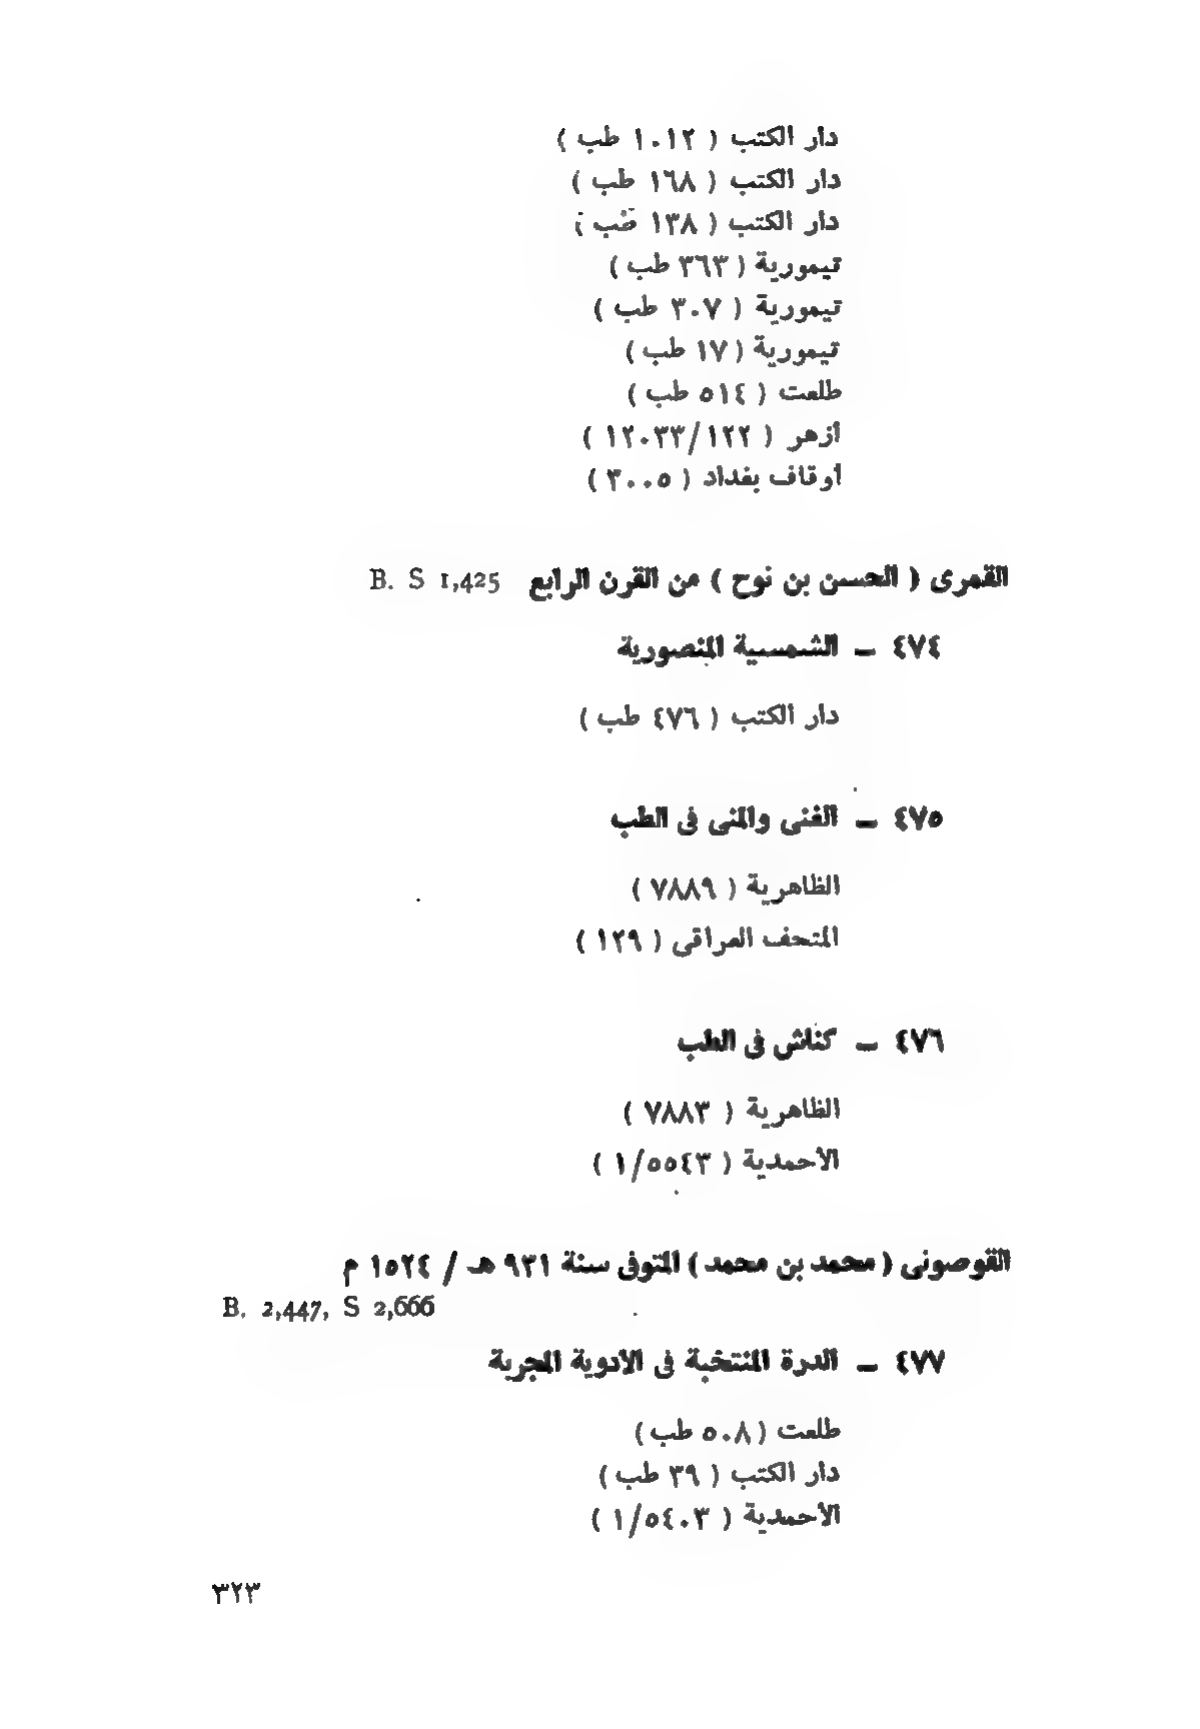 دار الكتب ( ١٠١٢ طب )
دار الكتب ( ١٦٨ طب )
دار الكتب ( ١٣٨ طب )
تيمورية ( ٣٦٣ طب )
تيمورية ( ٣٠٧ طب )
تيمورية ( ١٧ طب )
طلعت ( ٥١٤ طب )
أزهر ( ١٢٢/١٢٠٣٣ )
أوقاف بغداد ( ٣٠٠٥ )
القمرى ( الحسن بن نوح ) من القرن الرابع B. S 1,425
٤٧٤ ــ الشمسية المنصورية
دار الكتب ( ٤٧٦ طب )
٤٧٥ ــ الغنى والمنى فى الطب
الظاهرية ( ٧٨٨٩ )
المتحف العراقى ( ١٢٩ )
٤٧٦ ــ كناش فى الطب
الظاهرية ( ٧٨٨٣ )
الأحمدية ( ١/٥٥٤٣ )
القوصونى ( محمد بن محمد ) المتوفى سنة ٩٣١ هـ / ١٥٢٤ م
B. 2,447, S 2,666
٤٧٧ ــ الدرة المنتخبة فى الادوية المجربة
طلعت ( ٥٠٨ طب )
دار الكتب ( ٣٩ طب )
الأحمدية ( ١/٥٤٠٣ )
٣٢٣